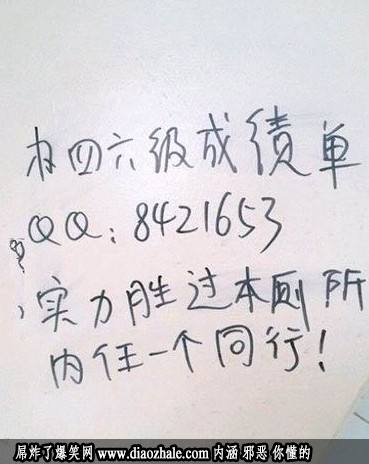 办四六级成绩单
QQ：8421653
实力胜过本厕所
内任一个同行！
屌炸了爆笑网 www.diaozhale.com 内涵 邪恶 你懂的